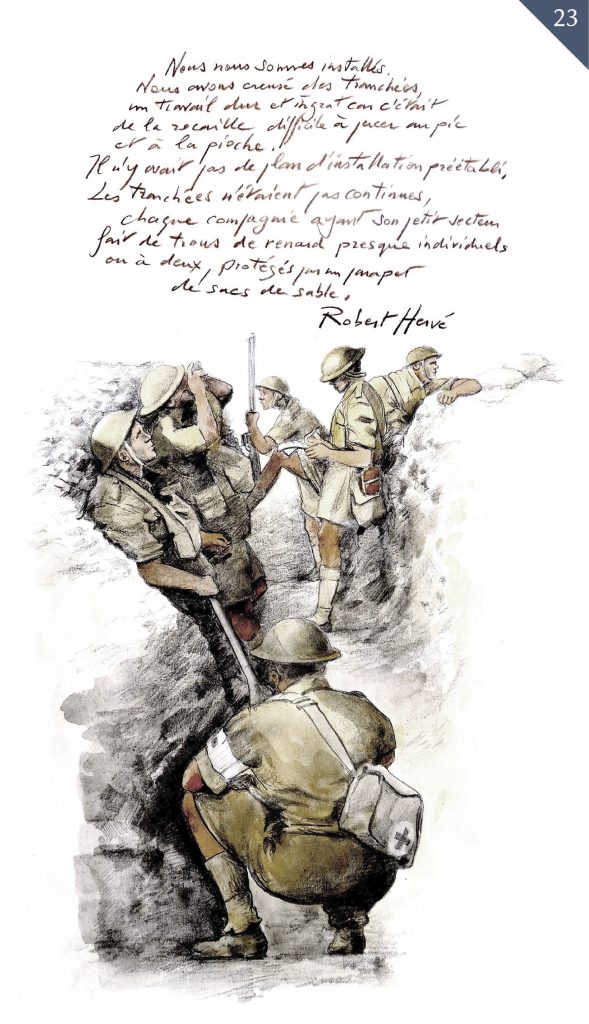 23
Nous nous sommes installés.
Nous avons creusé des tranchées,
un travail dur et ingrat car c'était
de la rocaille, difficile à percer au pic
et à la pioche.
Il n'y avait pas de plan d'installation préétabli.
Les tranchées n'étaient pas continues,
chaque compagnie ayant son petit secteur
fait de trous de renard presque individuels
ou à deux, protégés par un parapet
de sacs de sable.
Robert Hervé